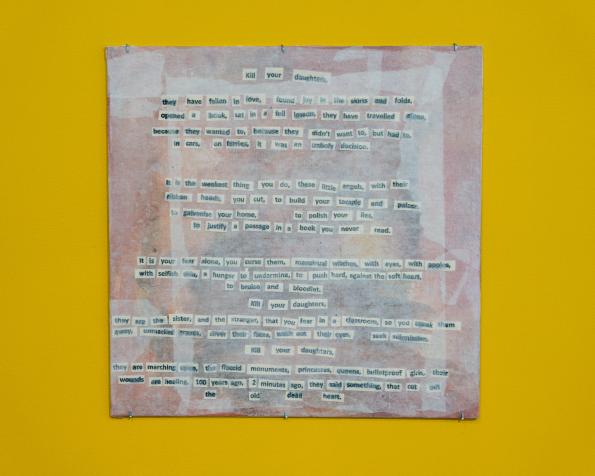 Kill your daughters,
they have fallen in love, found joy in the skirts and folds,
opened a book, sat in a full lesson, they have travelled alone,
because they wanted to, because they didn't want to, but had to.
in cars, on ferries, it was an unholy decision.
It is the weakest thing you do, these little angels, with their
ribbon heads, you cut, to build your temple and palace
to galvanise your home, to polish your lies,
to justify a passage in a book you never read.
It is your fear alone, you curse them, menstrual witches, with eyes, with apples,
with selfish skin, a hunger to undermine, to push hard, against the soft heart,
to bruise and bloodlet.
Kill your daughters,
they are the sister, and the stranger, that you fear in a classroom, so you sneak them
away, unmasked cover their faces, wash out their eyes, seek submission.
Kill your daughters,
they are marching upon, the flaccid monuments, princesses, queens, bulletproof girls, their
wounds are healing, 100 years ago, 2 minutes ago, they said something, that cut off
the old dead heart.